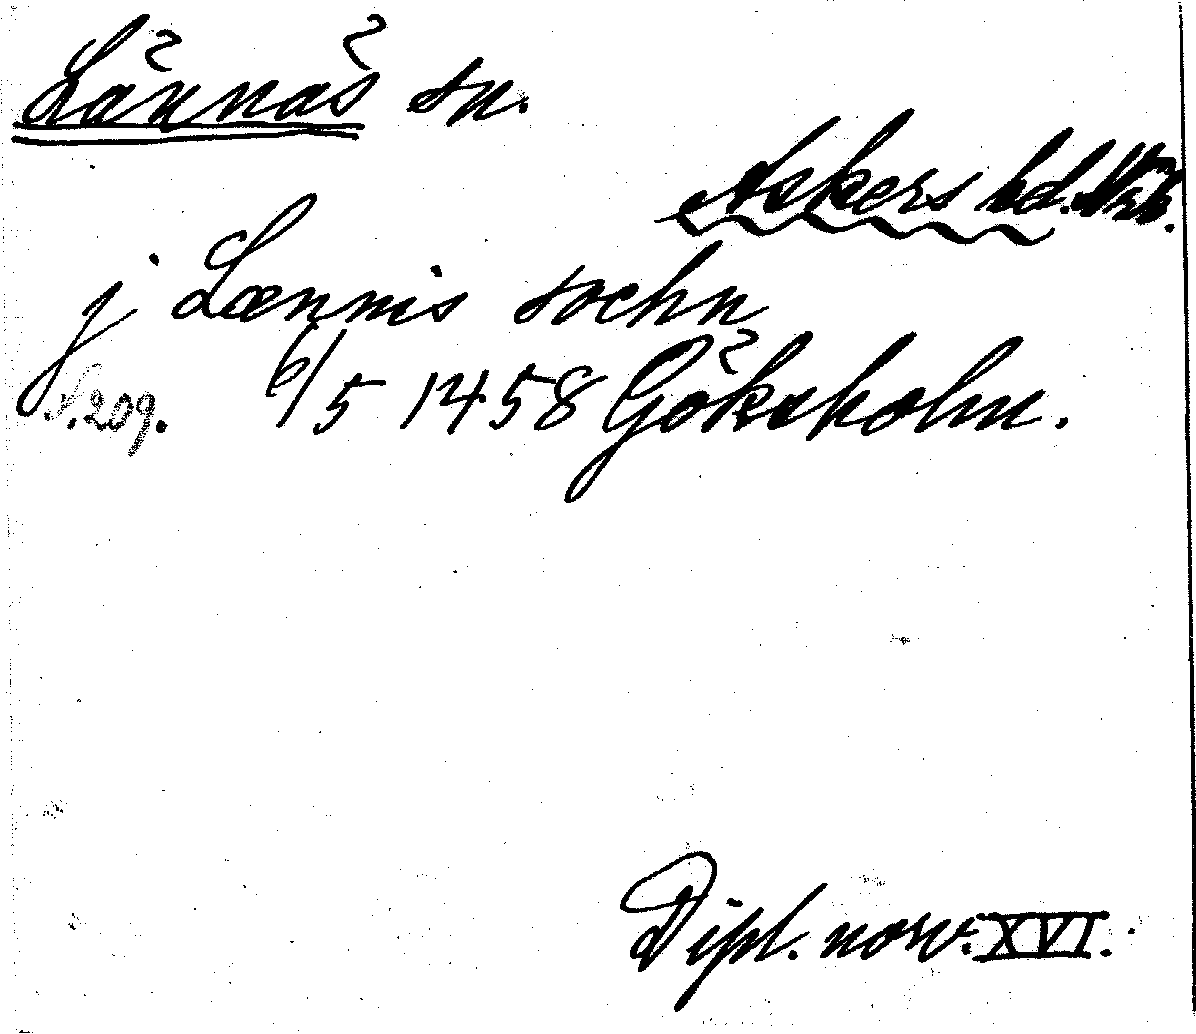 Lännäs sn.
Askers hd. Nrk.
j Lænnis sochn
S. 209. 6/5 1458 Göksholm.
Dipl. norv. XVI.